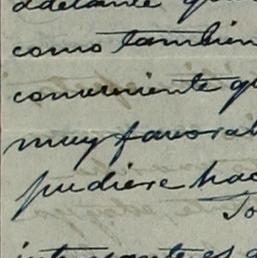 adelante qu
como tambien
conveniente qu
muy favorab
pudiere hac
To
interesante es